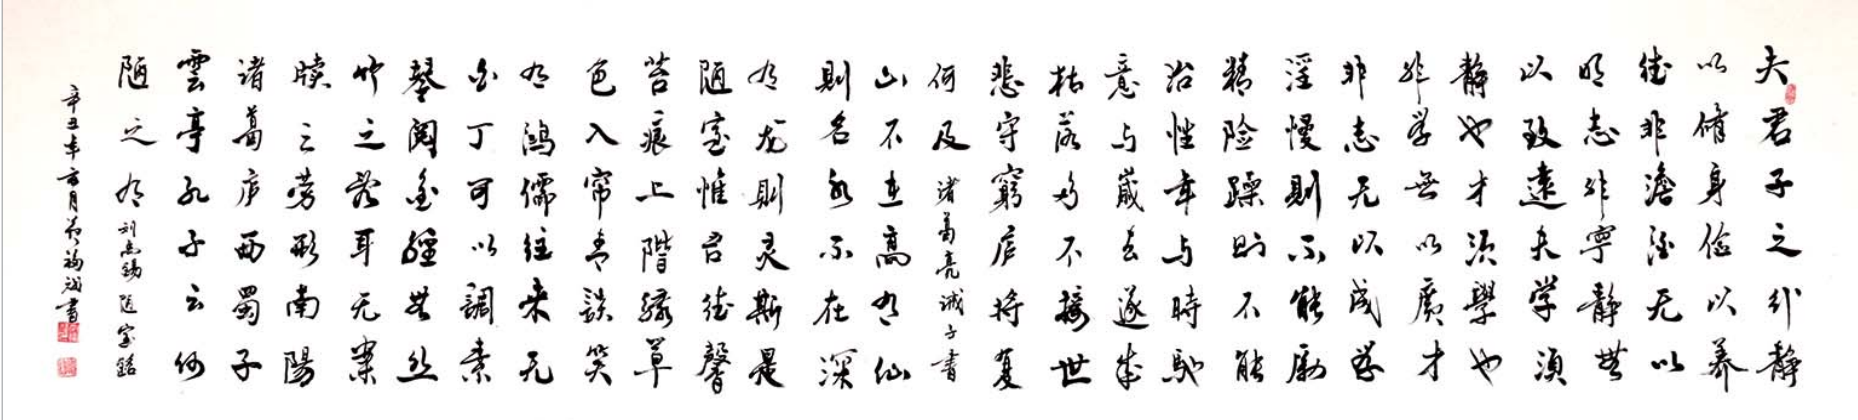 夫君子之行静
以脩身俭以养
德非澹泊无以
明志非宁静無
以致遠夫学須
静也才须學也
非学無以廣才
非志无以成学
淫慢則不能励
精险躁則不能
治性年与時馳
意与歲去遂成
枯落多不接世
悲守窮庐将复
何及 诸葛亮诫子書
山不在高有仙
則名水不在深
有龙則灵斯是
陋室惟吾德馨
苔痕上階緑草
色入帘青談笑
有鸿儒往来无
白丁可以調素
琴阅金經無丝
竹之乱耳无案
牍之劳形南陽
诸葛庐西蜀子
雲亭孔子云何
陋之有 刘禹锡陋室銘
辛丑年月福書